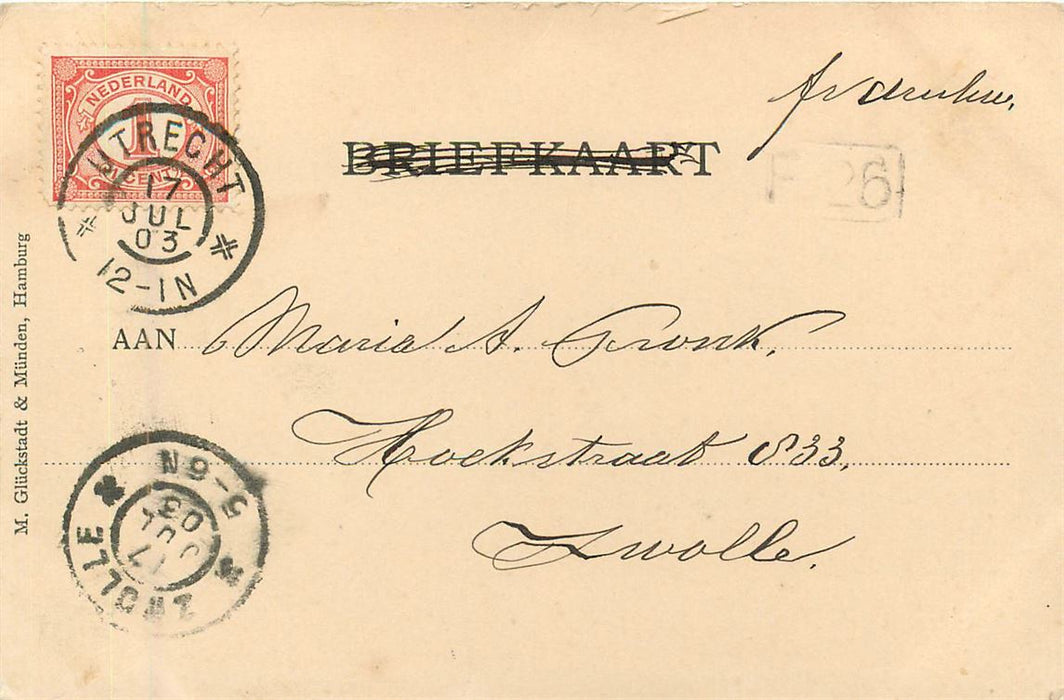 NEDERLAND
1
CENT
UTRECHT
17
JUL
03
12-1N
BRIEFKAART
F 26
AAN Maria A. Pronk,
Hoekstraat 833,
Zwolle.
ZWOLLE
17
JUL
03
5-6N
M. Glückstadt & Münden, Hamburg